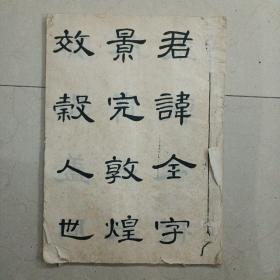 君諱全字
景完敦煌
效穀人也